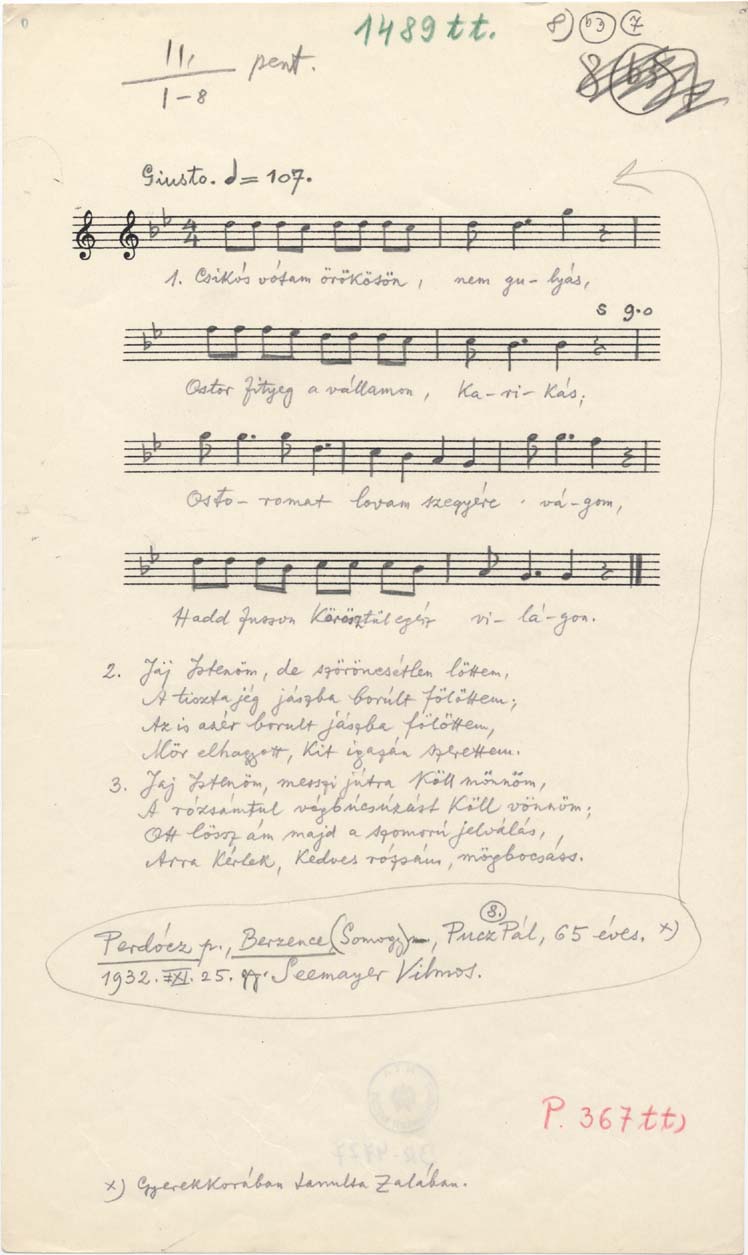 1489 tt.
8) b3 7
II,
1-8
pent.
Giusto. = 107.
1. Csikós vótam örökösön, nem gu-lyás,
s 9.0
Ostor fityeg a vállamon, Ka-ri-kás;
Osto-romat lovam szegyére vá-gom,
Hadd fusson Körösztül egész vi-lá-gon.
2. Jáj Istenöm, de szöröncsétlen löttem,
A tiszta jég jászba borúlt fölöttem;
Az is azér borult jászba fölöttem,
Mör elhagyott, Kit igazán szerettem.
3. Jaj Istenöm, messzi jútra Köll mönnöm,
A rózsámtul végbúcsúzást Köll vönnöm;
Ott lössz ám majd a szomorú jelválás,
Arra Kérlek, Kedves rózsám, mögbocsáss.
8.
Perdócz p., Berzence (Somogy), Pucz Pál, 65 éves. x)
1932. XI. 25. gy. Seemayer Vilmos.
P. 367 tt)
x) Gyerekkorában tanulta Zalában.